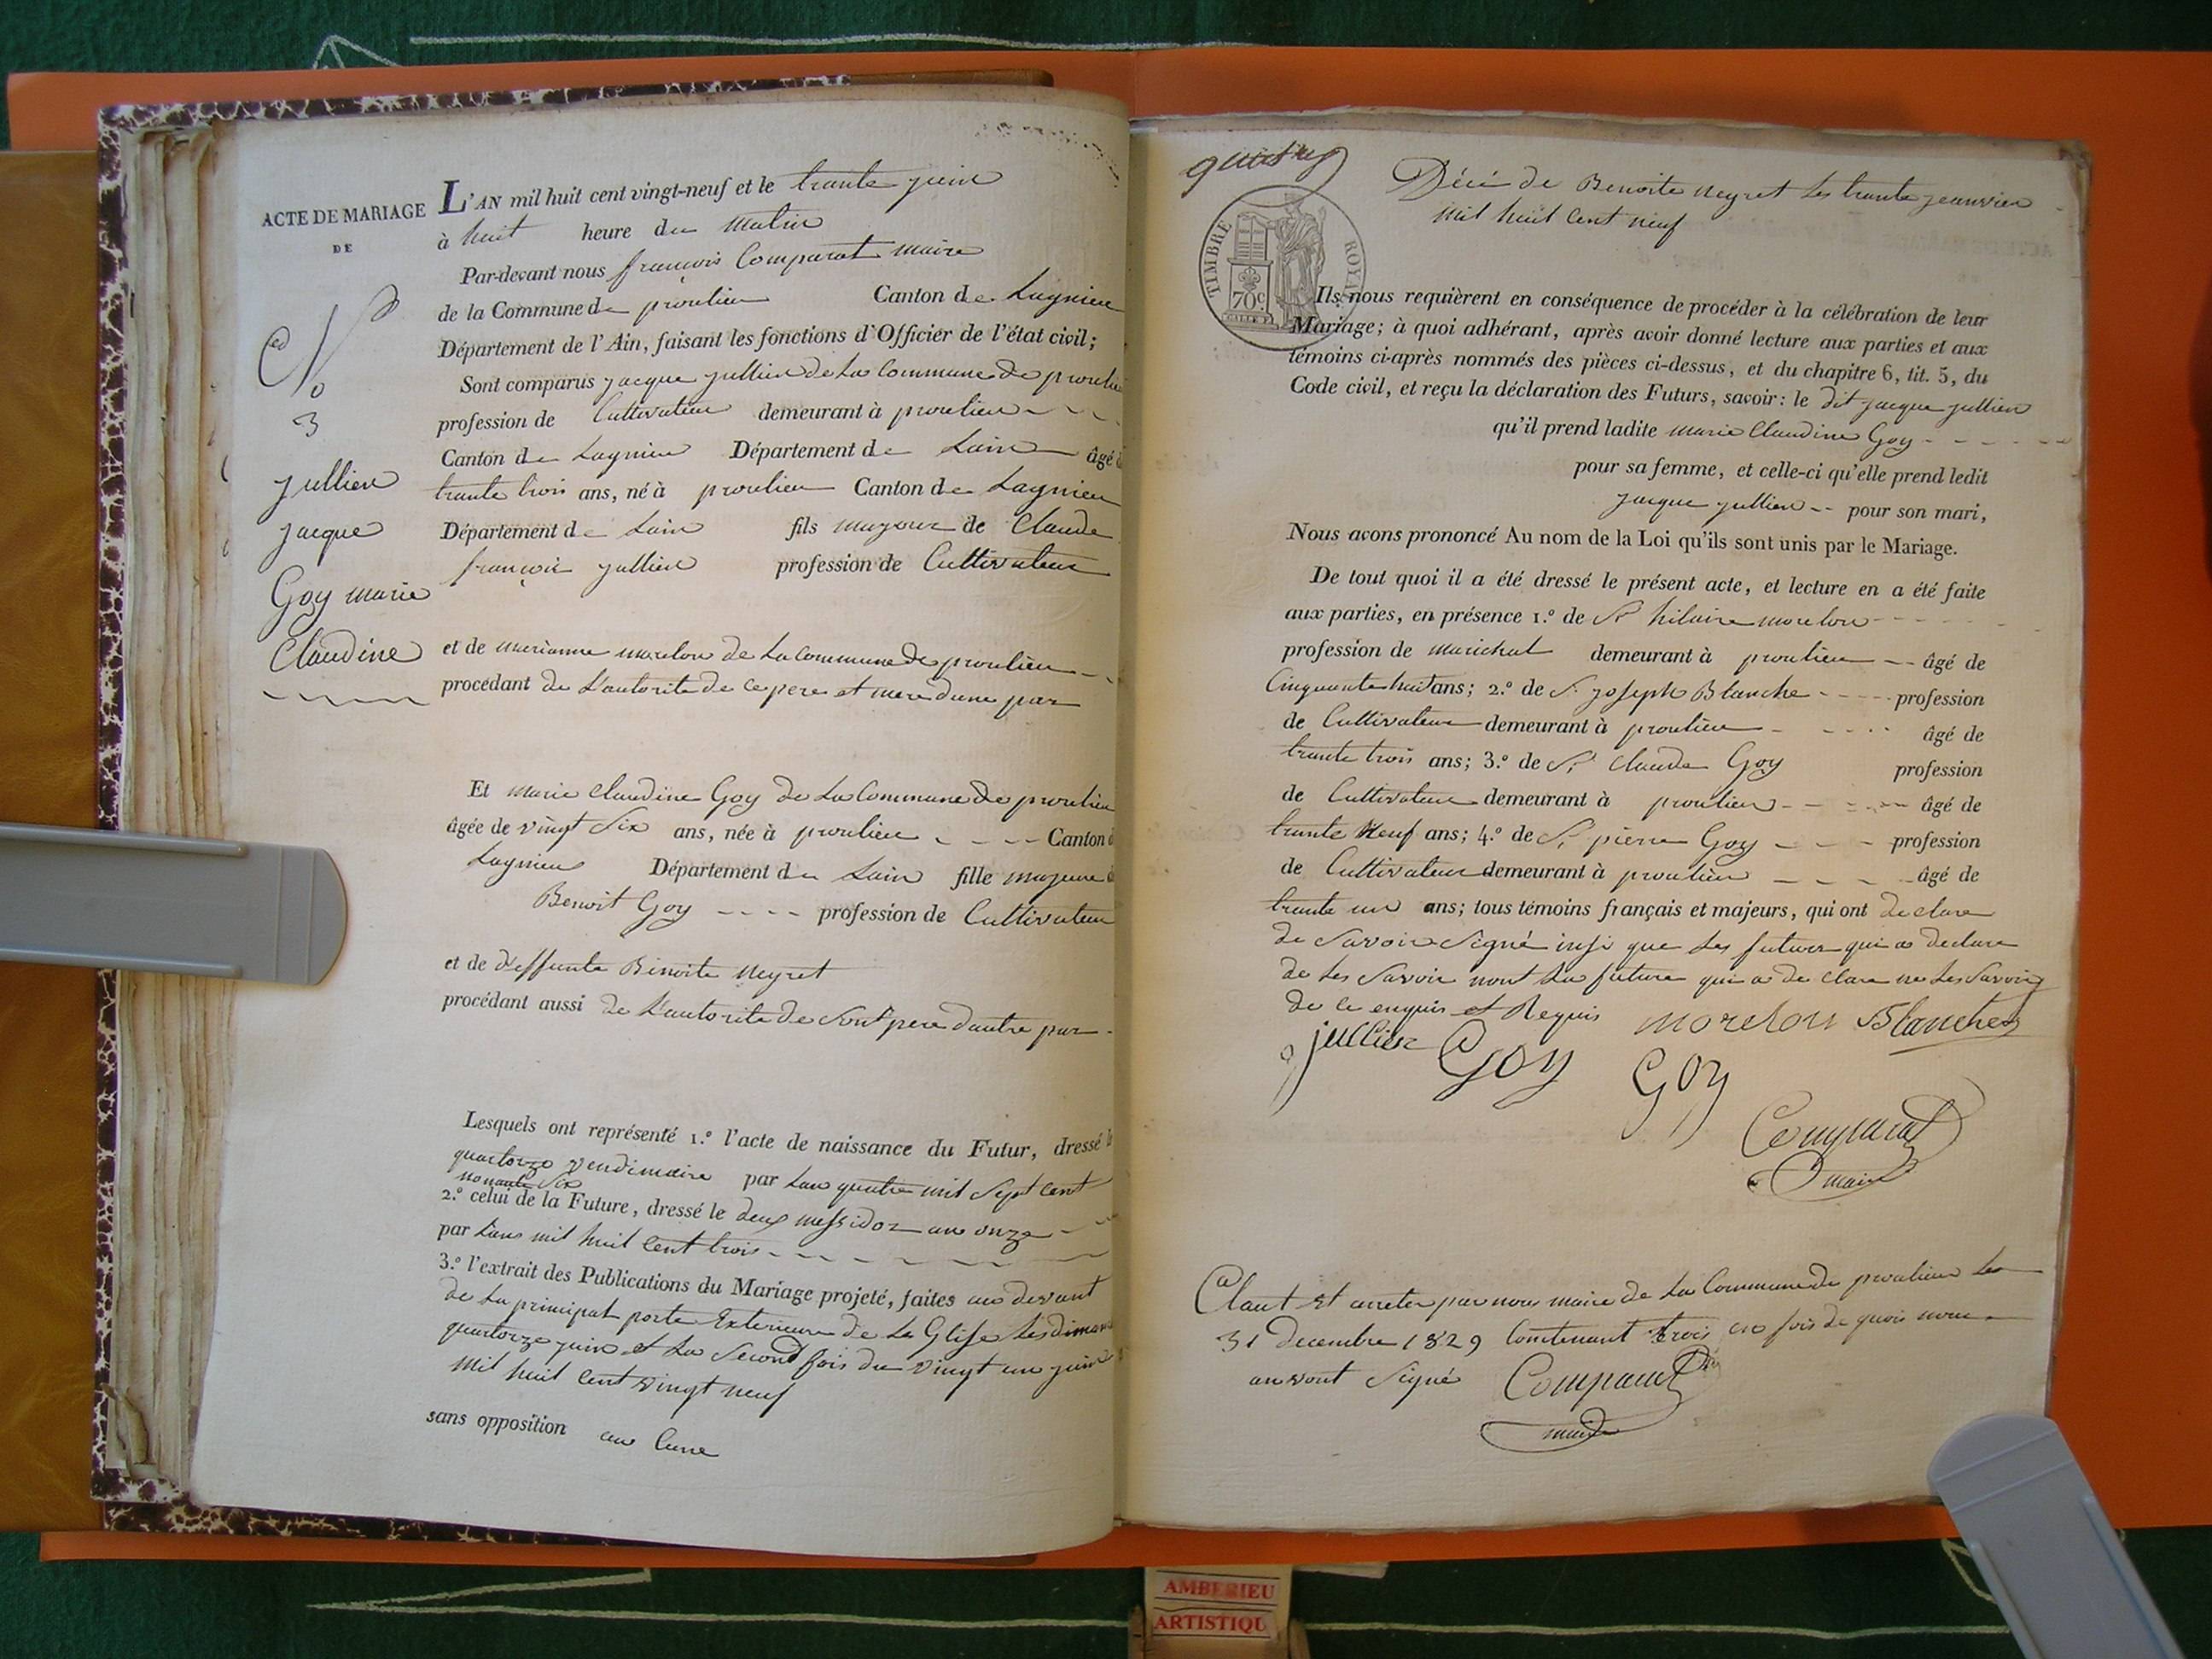 ACTE DE MARIAGE
DE
No
3
jullien
jacque
Goy marie
Claudine
L'AN mil huit cent vingt-neuf et le trante juin
à huit heure du matin
Par-devant nous françois Comparat maire
de la Commune de proulieu Canton de Lagnieu
Département de l'Ain, faisant les fonctions d'Officier de l'état civil;
Sont comparus jacque jullien de La Commune de proulieu
profession de Cultivateur demeurant à proulieu
Canton de Lagnieu Département de Lain âgé
trante trois ans, né à proulieu Canton de Lagnieu
Département de Lain fils majeur de Claude
françois jullien profession de Cultivateur
et de marianne morelon de La commune de proulieu
procédant de L'autorite de ce pere et mere dune par
Et marie Claudine Goy de La Commune de proulieu
âgée de vingt Six ans, née à proulieu Canton
Lagnieu Département de Lain fille majeure
Benoit Goy profession de Cultivateur
et de d'effunte Benoite neyret
procédant aussi de L'autorite de Sont pere dautre par
Lesquels ont représenté 1.º l'acte de naissance du Futur, dressé
quartorze vendimaire par Lan quatre mil Sept cent
nonante Six
2.º celui de la Future, dressé le deux messidor an onze
par Lans mil huit Cent trois
3.º l'extrait des Publications du Mariage projeté, faites au devant
de La principal porte Exterieure de La Glise Les
quartorze juin et La Second fois du vingt un juin
mil huit Cent vingt neuf
sans opposition au Cune
Décé de Benoite neyret Les trante jeanvier
mil huit Cent neuf
TIMBRE ROYAL
70c
Ils nous requièrent en conséquence de procéder à la célébration de leur
Mariage; à quoi adhérant, après avoir donné lecture aux parties et aux
témoins ci-après nommés des pièces ci-dessus, et du chapitre 6, tit. 5, du
Code civil, et reçu la déclaration des Futurs, savoir: le dit jacque jullien
qu'il prend ladite marie Claudine Goy
pour sa femme, et celle-ci qu'elle prend ledit
jacque jullien pour son mari,
Nous avons prononcé Au nom de la Loi qu'ils sont unis par le Mariage.
De tout quoi il a été dressé le présent acte, et lecture en a été faite
aux parties, en présence 1.º de Sr hilaire morelon
profession de marichal demeurant à proulieu âgé de
Cinquante huit ans; 2.º de Sr joseph Blanche profession
de Cultivateur demeurant à proulieu âgé de
trante trois ans; 3.º de Sr Claude Goy profession
de Cultivateur demeurant à proulieu âgé de
trante Neuf ans; 4.º de Sr pierre Goy profession
de Cultivateur demeurant à proulieu âgé de
trante un ans; tous témoins français et majeurs, qui ont declare
de Savoir Signé insi que Les futur qui a declare
de Les Savoir nont La future qui a de clare ne Les Savoir
de ce enquis et Requis morelon Blanche
jullien Goy Goy
Comparat
maire
Claut et arreter par nous maire de La Commune de proulieu Le
31 decembre 1829 Contenant trois en fois de quois nous
avont Signé Comparat
maire
AMBERIEU
ARTISTIQU